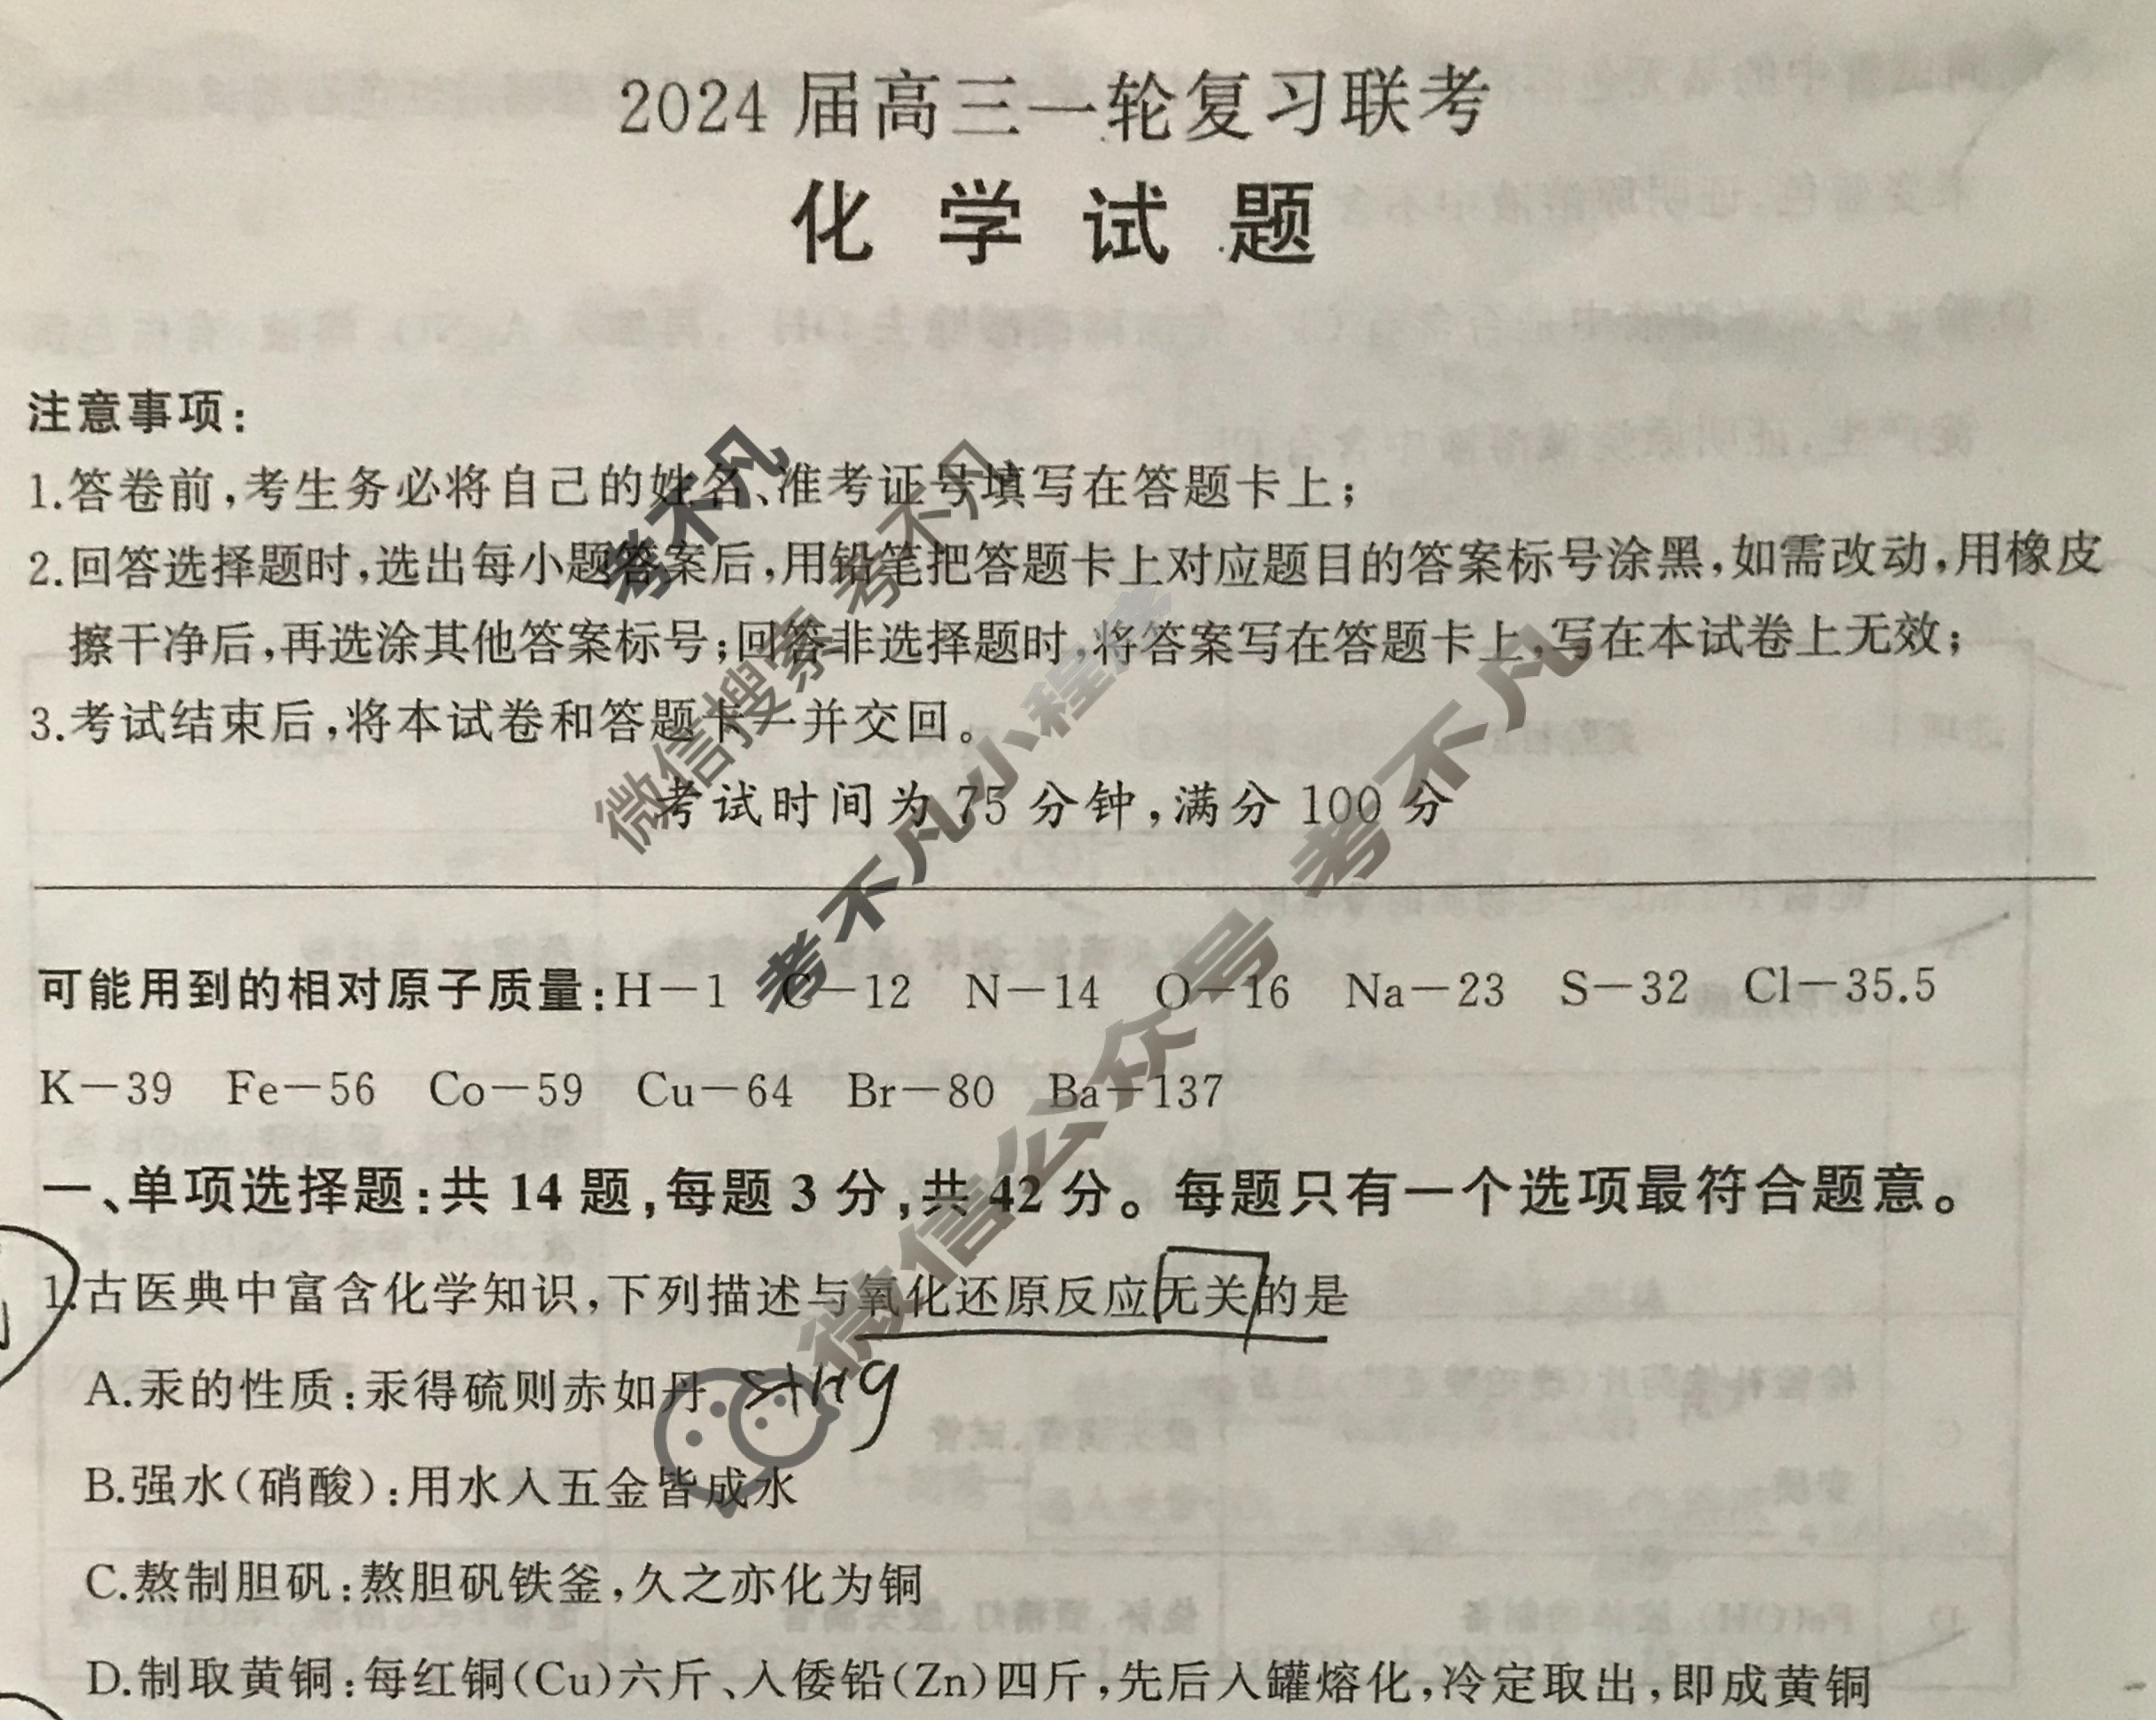 2024 届高三一轮复习联考
化学试题
注意事项:
1.答卷前,考生务必将自己的姓名、准考证号填写在答题卡上;
2.回答选择题时,选出每小题答案后,用铅笔把答题卡上对应题目的答案标号涂黑,如需改动,用橡皮
擦干净后,再选涂其他答案标号;回答非选择题时,将答案写在答题卡上,写在本试卷上无效;
3.考试结束后,将本试卷和答题卡一并交回。
考试时间为 75 分钟,满分 100 分
可能用到的相对原子质量:H-1 C-12 N-14 O-16 Na-23 S-32 Cl-35.5
K-39 Fe-56 Co-59 Cu-64 Br-80 Ba-137
一、单项选择题:共 14 题,每题 3 分,共 42 分。每题只有一个选项最符合题意。
1.古医典中富含化学知识,下列描述与氧化还原反应无关的是
A.汞的性质:汞得硫则赤如丹 S+Hg
B.强水(硝酸):用水入五金皆成水
C.熬制胆矾:熬胆矾铁釜,久之亦化为铜
D.制取黄铜:每红铜(Cu)六斤、入倭铅(Zn)四斤,先后入罐熔化,冷定取出,即成黄铜
考不凡
微信搜索 考不凡
考不凡小程序
微信公众号 考不凡